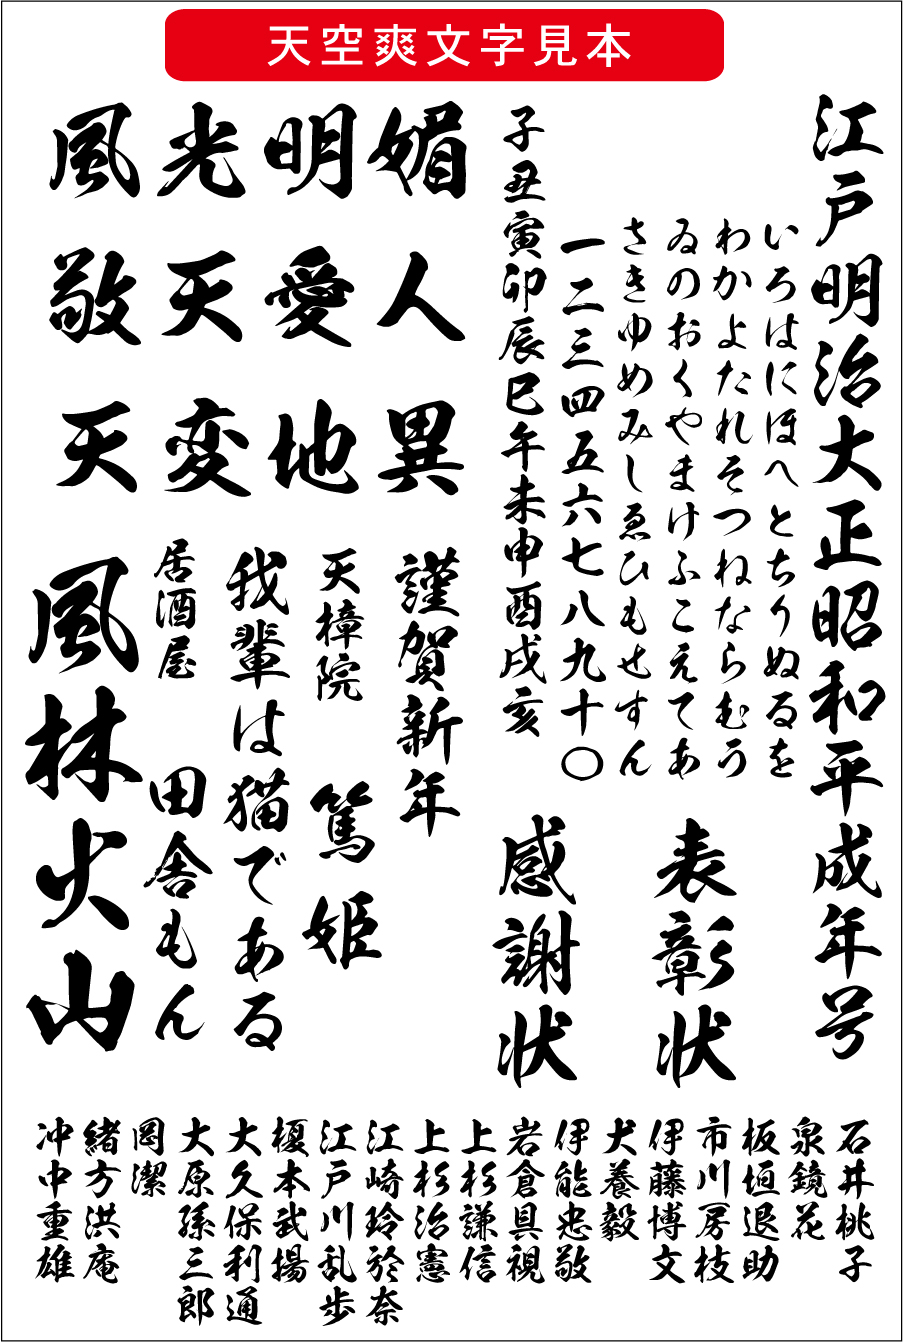 天空爽文字見本
江戸明治大正昭和平成年号
いろはにほへとちりぬるを
わかよたれそつねならむう
ゐのおくやまけふこえてあ
さきゆめみしゑひもせすん
一二三四五六七八九十〇
子丑寅卯辰巳午未申酉戌亥
表彰状
感謝状
媚人異
明愛地
光天変
風敬天
謹賀新年
天樟院
篤姫
我輩は猫である
居酒屋
田舎もん
風林火山
石井桃子
泉鏡花
板垣退助
市川房枝
伊藤博文
犬養毅
伊能忠敬
岩倉具視
上杉謙信
上杉治憲
江崎玲於奈
江戸川乱歩
榎本武揚
大久保利通
大原孫三郎
岡潔
緒方洪庵
冲中重雄